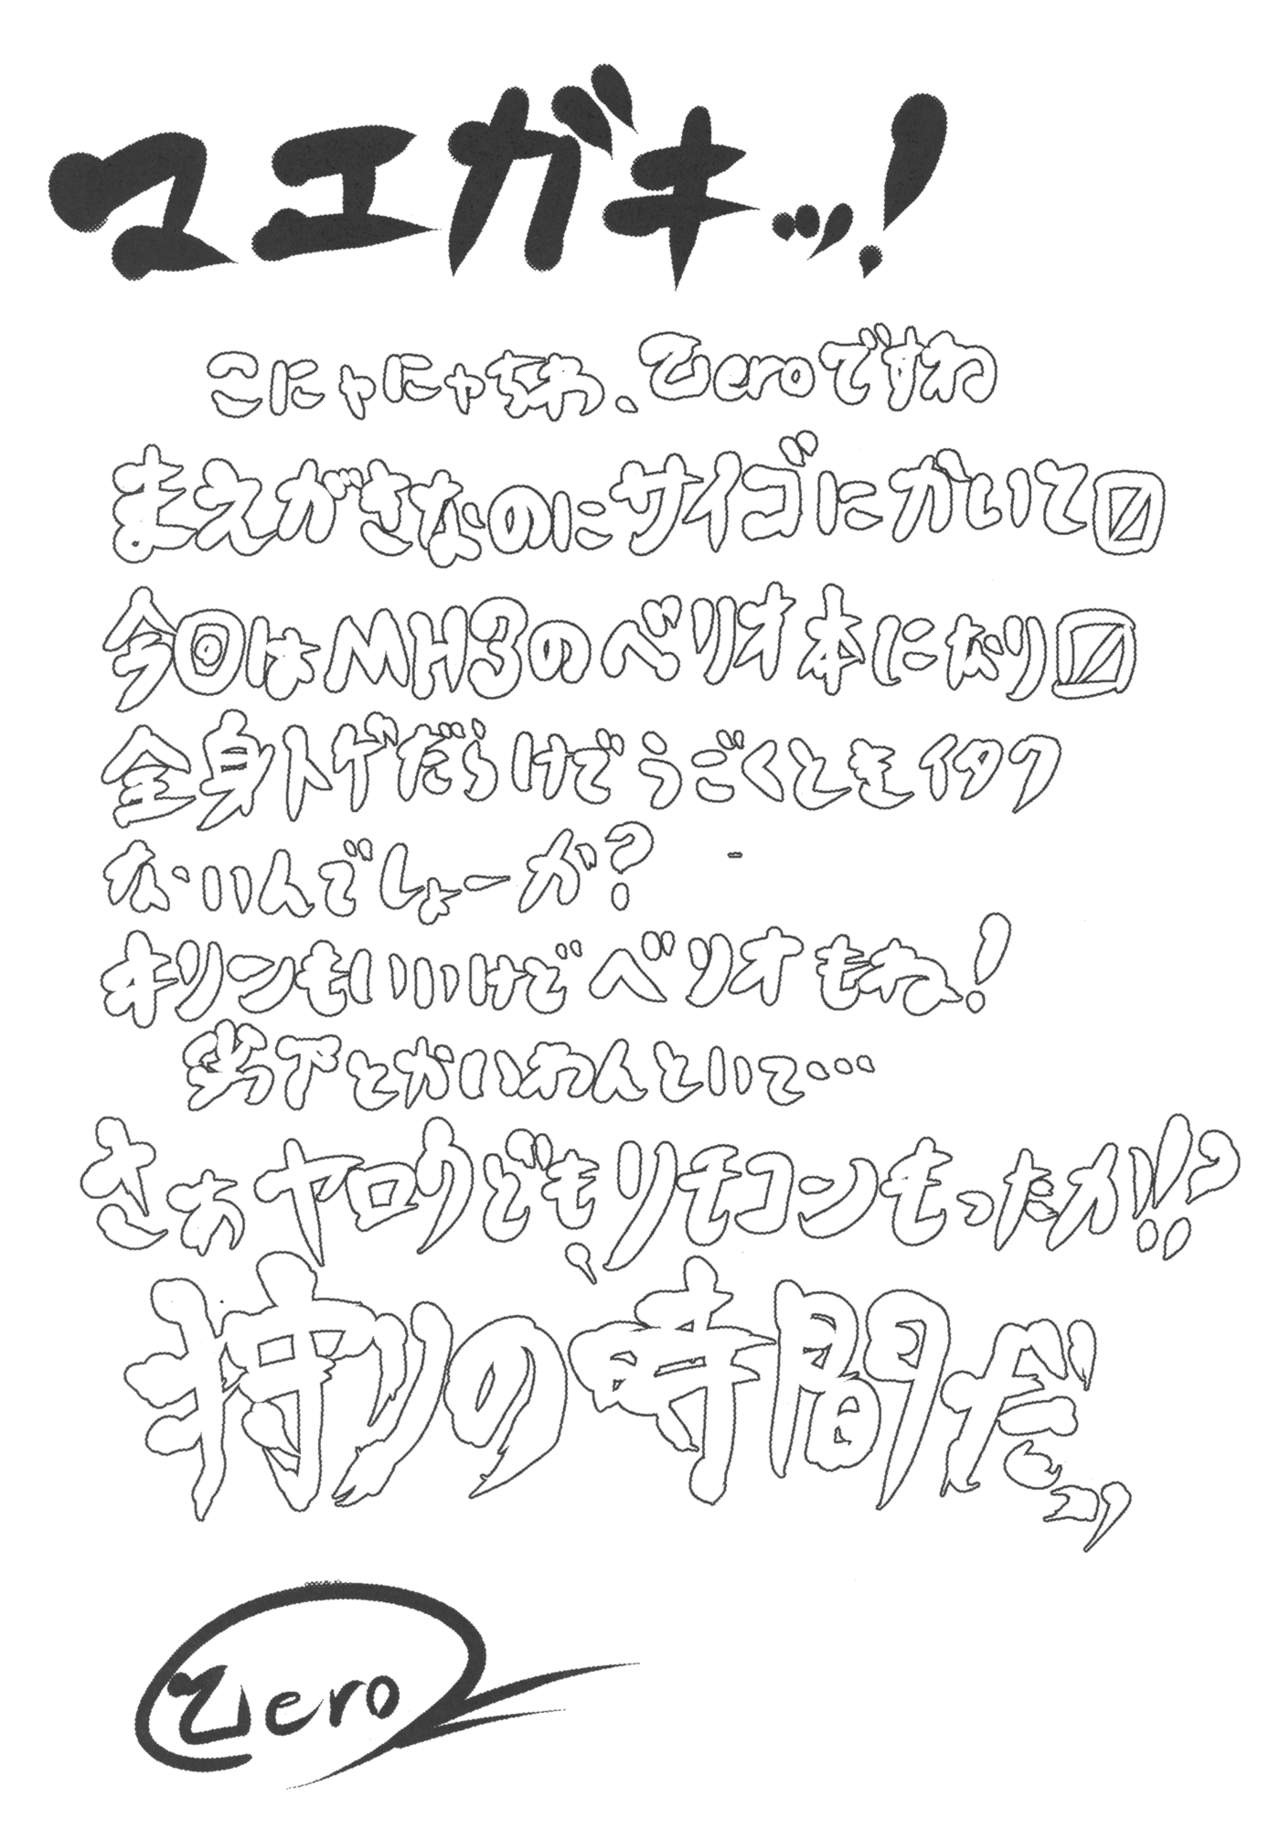 マエガキッ!
こにゃにゃちわ、Zeroですわ
まえがきなのにサイゴにかいて〼
今回はMH3のベリオ本になり〼
全身トゲだらけでうごくときイタク
ないんでしょーか?
キリンもいいけどベリオもね!
劣下とかいわんといて…
さぁヤロウども、リモコンもったか!!?
狩りの時間だッ
Zero